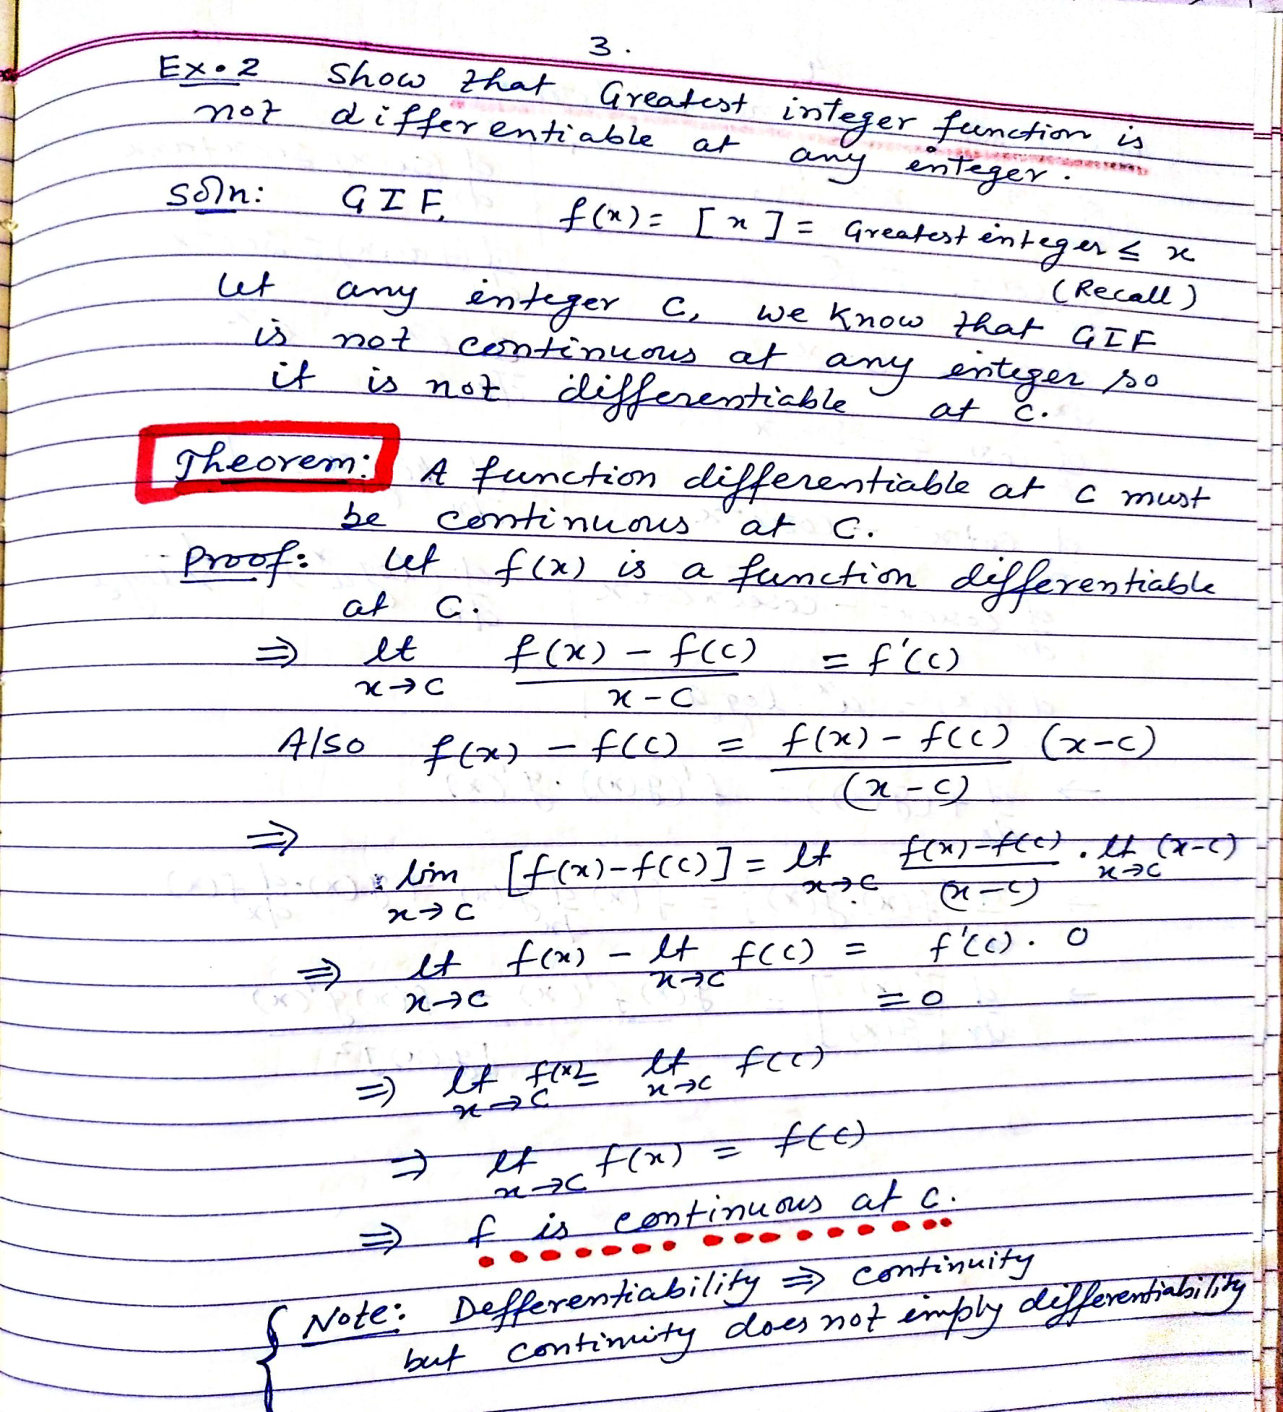 3.
Ex.2 Show that Greatest integer function is
not differentiable at any integer.
Soln: GIF, f(x) = [x] = Greatest integer ≤ x
(Recall)
Let any integer c, we know that GIF
is not continuous at any integer so
it is not differentiable at c.
Theorem: A function differentiable at c must
be continuous at c.
Proof: Let f(x) is a function differentiable
at c.
⇒ lt x→c (f(x) - f(c))/(x-c) = f'(c)
Also f(x) - f(c) = (f(x) - f(c))/(x-c) (x-c)
⇒
lim x→c [f(x)-f(c)] = lt x→c (f(x)-f(c))/(x-c) . lt x→c (x-c)
⇒ lt x→c f(x) - lt x→c f(c) = f'(c). 0
= 0
⇒ lt x→c f(x) = lt x→c f(c)
⇒ lt x→c f(x) = f(c)
⇒ f is continuous at c.
Note: Defferentiability ⇒ continuity
but continuity does not imply differentiability